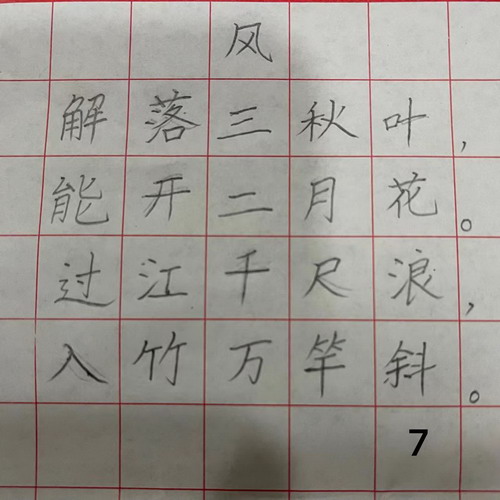 风
解落三秋叶，
能开二月花。
过江千尺浪，
入竹万竿斜。
7